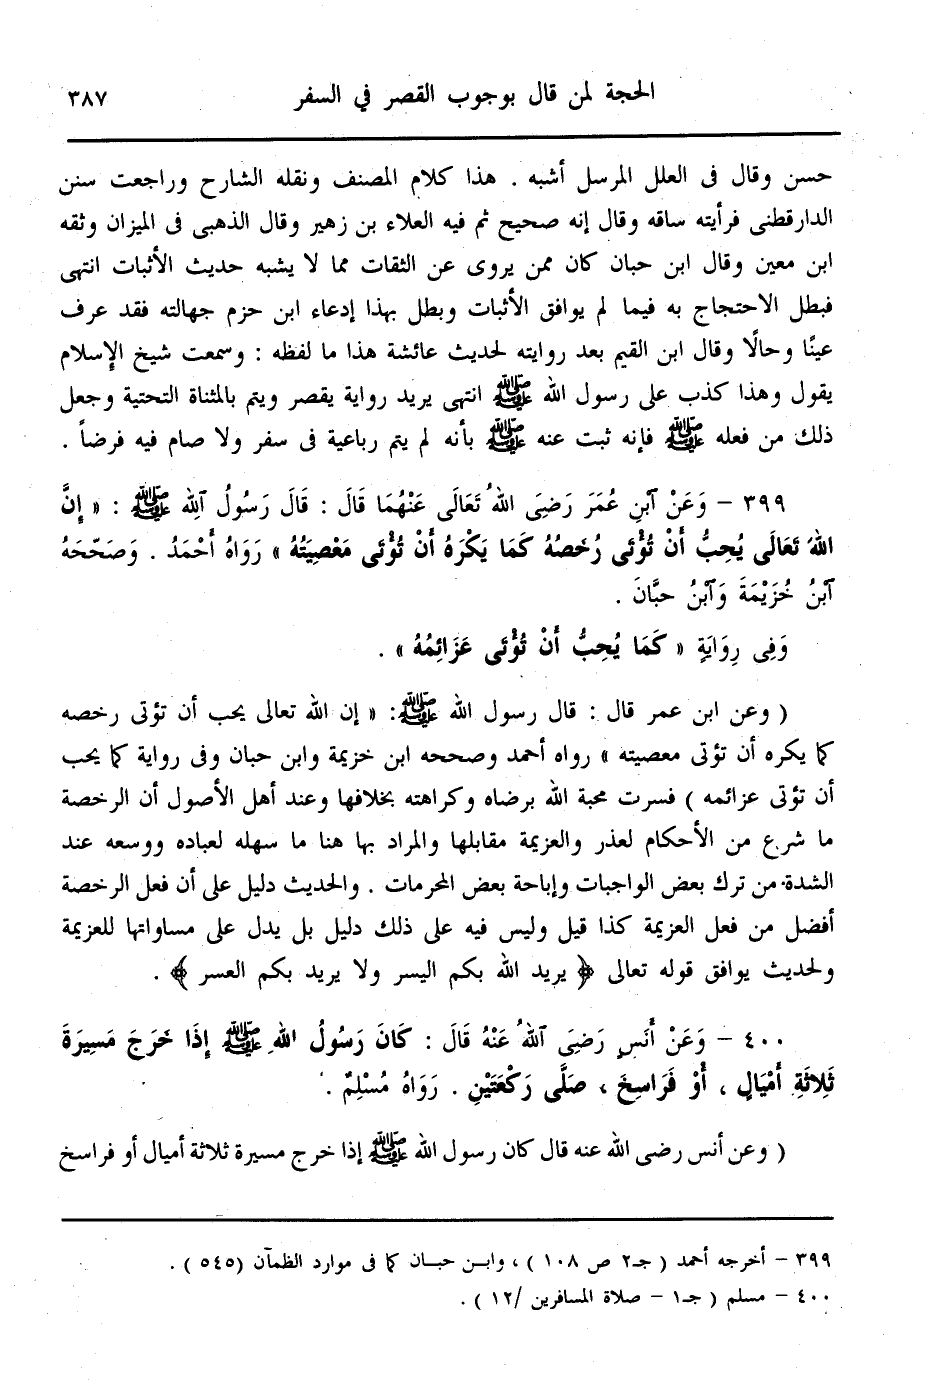 الحجة لمن قال بوجوب القصر في السفر ٣٨٧
حسن وقال فى العلل المرسل أشبه . هذا كلام المصنف ونقله الشارح وراجعت سنن
الدارقطنى فرأيته ساقه وقال إنه صحيح ثم فيه العلاء بن زهير وقال الذهبى فى الميزان وثقه
ابن معين وقال ابن حبان كان ممن يروى عن الثقات مما لا يشبه حديث الأثبات انتهى
فبطل الاحتجاج به فيما لم يوافق الأثبات وبطل بهذا إدعاء ابن حزم جهالته فقد عرف
عينًا وحالًا وقال ابن القيم بعد روايته لحديث عائشة هذا ما لفظه : وسمعت شيخ الإسلام
يقول وهذا كذب على رسول الله ﷺ انتهى يريد رواية يقصر ويتم بالمثناة التحتية وجعل
ذلك من فعله ﷺ فإنه ثبت عنه ﷺ بأنه لم يتم رباعية فى سفر ولا صام فيه فرضاً .
٣٩٩ – وَعَنْ ٱبْنِ عُمَرَ رَضِىَ اللهُ تَعَالَى عَنْهُمَا قَالَ : قَالَ رَسُولُ ٱللهِ ﷺ : « إِنَّ
اللهَ تَعَالَى يُحِبُّ أَنْ تُؤْتَى رُخَصُهُ كَمَا يَكْرَهُ أَنْ تُؤْتَى مَعْصِيَتُهُ » رَوَاهُ أَحْمَدُ . وَصَحّحَهُ
ٱبْنُ خُزَيْمَةَ وَٱبْنُ حبَّانَ .
وَفِى رِوَايَةٍ « كَمَا يُحِبُّ أَنْ تُؤْتَى عَزَائِمُهُ » .
( وعن ابن عمر قال : قال رسول الله ﷺ: « إن الله تعالى يحب أن تؤتى رخصه
كما يكره أن تؤتى معصيته » رواه أحمد وصححه ابن خزيمة وابن حبان وفى رواية كما يحب
أن تؤتى عزائمه ) فسرت محبة الله برضاه وكراهته بخلافها وعند أهل الأصول أن الرخصة
ما شرع من الأحكام لعذر والعزيمة مقابلها والمراد بها هنا ما سهله لعباده ووسعه عند
الشدة من ترك بعض الواجبات وإباحة بعض المحرمات . والحديث دليل على أن فعل الرخصة
أفضل من فعل العزيمة كذا قيل وليس فيه على ذلك دليل بل يدل على مساواتها للعزيمة
ولحديث يوافق قوله تعالى ﴿ يريد الله بكم اليسر ولا يريد بكم العسر ﴾ .
٤٠٠ – وَعَنْ أَنَسٍ رَضِىَ ٱللهُ عَنْهُ قَالَ : كَانَ رَسُولُ اللهِ ﷺ إِذَا خَرَجَ مَسِيرَةَ
ثَلِاثَةِ أَمْيَالٍ ، أَوْ فَرَاسِخَ ، صَلَّى رَكْعَتَيْنِ . رَوَاهُ مُسْلِمٌ .
( وعن أنس رضى الله عنه قال كان رسول الله ﷺ إذا خرج مسيرة ثلاثة أميال أو فراسخ
٣٩٩ – أخرجه أحمد ( جـ٢ ص ١٠٨ ) ، وابـن حبــان كما فى موارد الظمآن (٥٤٥ ) .
٤٠٠ – مسلم ( جـ١ – صلاة المسافرين /١٢ ) .